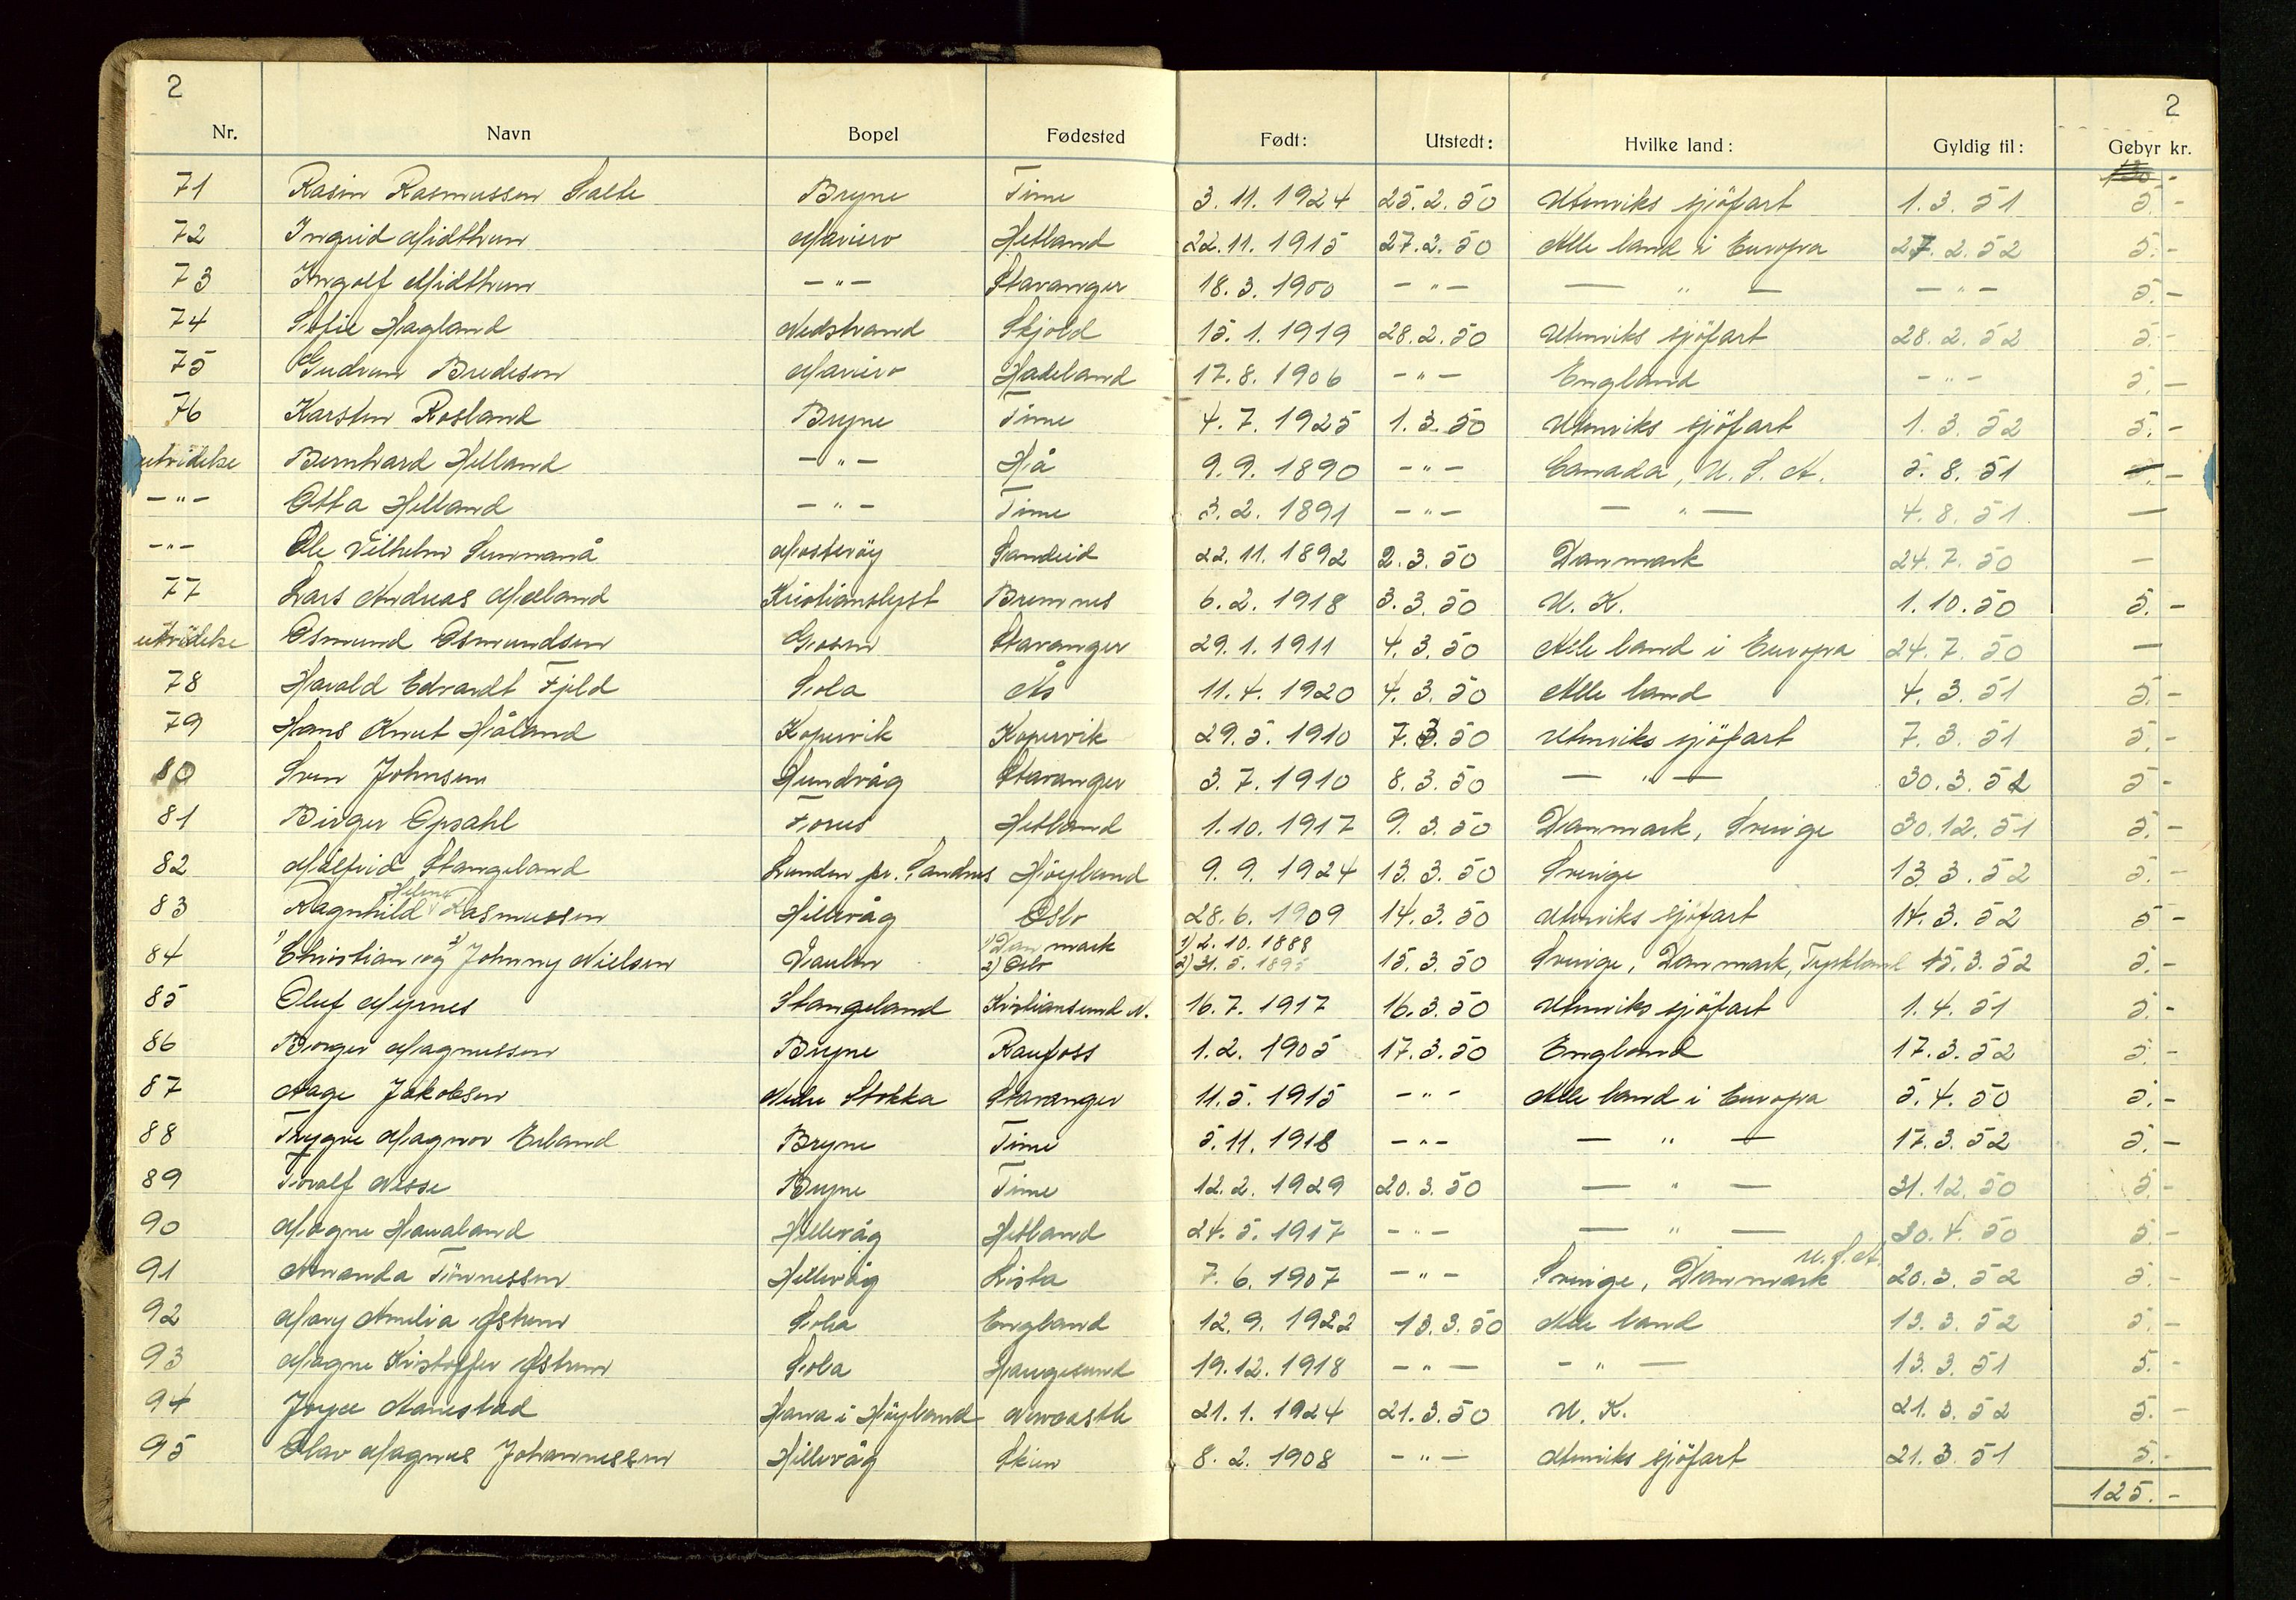 2 2
Nr. Navn Bopel Fødested Født: Utstedt: Hvilke land: Gyldig til: Gebyr kr.
71 Rasin Rasmussen Salte Bryne Time 3.11.1924 25.2.50 Utenriks sjöfart 1.3.51 5.-
72 Ingrid Midthun Mariero Hetland 22.11.1915 27.2.50 Alle land i Europa 27.2.52 5.-
73 Ingolf Midthun -"- Stavanger 18.3.1900 -"- -"- -"- 5.-
74 Sofie Hagland Nedstrand Skjold 15.1.1919 28.2.50 Utenriks sjöfart 28.2.52 5.-
75 Gudrun Bredesen Mariero Hadeland 17.8.1906 -"- England -"- 5.-
76 Karsten Rosland Bryne Time 4.7.1925 1.3.50 Utenriks sjöfart 1.3.52 5.-
utvidelse Bernhard Helland -"- Hå 9.9.1890 -"- Canada, U.S.A. 5.8.51 -
-"- Otta Helland -"- Time 3.2.1891 -"- -"- 4.8.51 -
-"- Ole Vilhelm Sunnanå Mosteröy Sandeid 22.11.1892 2.3.50 Danmark 24.7.50 -
77 Lars Andreas Mæland Kristianslyst Bremnes 6.2.1918 3.3.50 U.K. 1.10.50 5.-
utvidelse Osmund Osmundsen Gosen Stavanger 29.1.1911 4.3.50 Alle land i Europa 24.7.50 -
78 Harald Edvardt Fjeld Sola Ås 11.4.1920 4.3.50 Alle land 4.3.51 5.-
79 Hans Knut Håland Kopervik Kopervik 29.5.1910 7.3.50 Utenriks sjöfart 7.3.51 5.-
80 Sven Johnsen Hundvåg Stavanger 3.7.1910 8.3.50 -"- 30.3.52 5-
81 Birger Opsahl Forus Hetland 1.10.1917 9.3.50 Danmark, Sverige 30.12.51 5.-
82 Målfrid Stangeland Lunden pr. Sandnes Höyland 9.9.1924 13.3.50 Sverige 13.3.52 5.-
83 Ragnhild Helene Rasmussen Hillevåg Oslo 28.6.1909 14.3.50 Utenriks sjöfart 14.3.52 5-
84 1) Christian og 2) Johnny Nielsen Vaulen 1) Danmark 1) 2.10.1888 15.3.50 Sverige, Danmark, Tyskland 15.3.52 5.-
2) Oslo 2) 31.5.1895
85 Oluf Myrnes Stangeland Kristiansund N. 16.7.1917 16.3.50 Utenriks sjöfart 1.4.51 5.-
86 Borger Magnussen Bryne Raufoss 1.2.1905 17.3.50 England 17.3.52 5.-
87 Aage Jakobsen Nedre Stokka Stavanger 11.5.1915 -"- Alle land i Europa 5.4.50 5.-
88 Trygve Magnor Erland Bryne Time 5.11.1918 -"- -"- 17.3.52 5.-
89 Toralf Nesse Bryne Time 12.2.1929 20.3.50 -"- 31.12.50 5.-
90 Magne Havaland Hillevåg Hetland 24.5.1917 -"- -"- 30.4.50 5.-
91 Amanda Tönnessen Hillevåg Lista 7.6.1907 -"- Sverige, Danmark U.S.A. 20.3.52 5.-
92 Mary Amelia Østrem Sola England 12.9.1922 13.3.50 Alle land 13.3.52 5.-
93 Magne Kristoffer Østrem Sola Haugesund 19.12.1918 -"- -"- 13.3.51 5.-
94 Joyce Nanestad Hana i Höyland Newcastle 21.1.1924 21.3.50 U.K. 21.3.52 5.-
95 Olav Magnus Johannessen Hillevåg Skien 8.2.1908 -"- Utenriks sjöfart 21.3.51 5.-
125.-